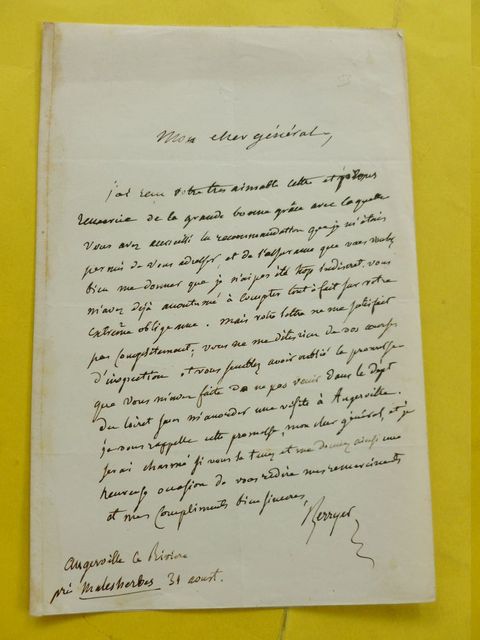 Mon cher général,
j'ai reçu votre très aimable lettre et je vous
remercie de la grande bonne grâce avec laquelle
vous avez accueilli la recommandation que je m'étais
permis de vous adresser, et de l'assurance que vous voulez
bien me donner que je n'ai pas été trop indiscret. vous
m'avez déjà accoutumé à compter tout à fait sur votre
extrême obligeance. mais votre lettre ne me satisfait
pas complètement; vous ne me dites rien de vos courses
d'inspection et vous semblez avoir oublié la promesse
que vous m'avez faite de ne pas venir dans le dépt
du Loiret sans m'accorder une visite à Angerville.
je vous rappelle cette promesse, mon cher général, et je
serai charmé si vous la tenez et me donnez ainsi une
heureuse occasion de vous redire mes remerciments
et mes compliments bien sincères,
Berryer
Angerville la Rivière
près Malesherbes 31 aoust.